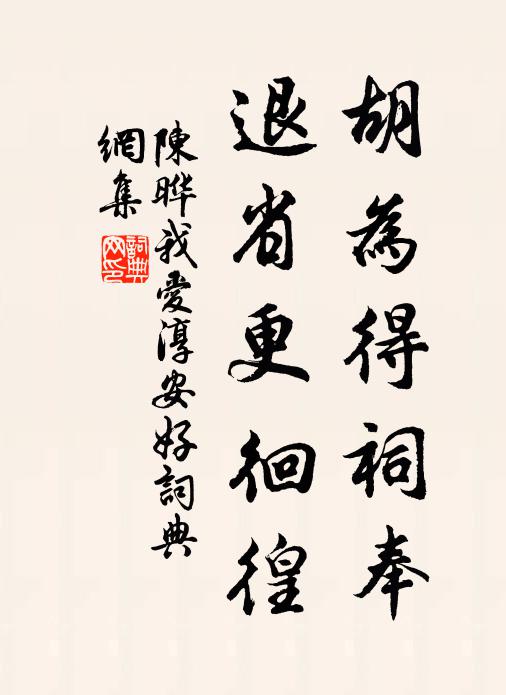 胡為得祠奉
退省更徊徨
陳晔我愛淳安好詞典
網集
詞典
网印